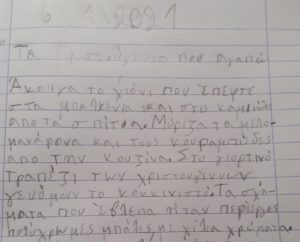 6 1 2021
Τα Χριστούγεννα που αγαπώ
Άκουγα το χιόνι που έπεφτε
στα μπαλκόνια και στις καμινάδες
απο τα σπίτια. Μύριζα τα μελο-
μακάρονα και τους κουραμπιέδες
απο την κουζίνα. Στο γιορτινό
τραπέζι των χριστουγέννων
γευόμουν το κοκκινιστό. Τα σχή-
ματα που έβλεπα ήταν περίεργα
πολύχρωμες μπάλες με χίλια χρώματα.